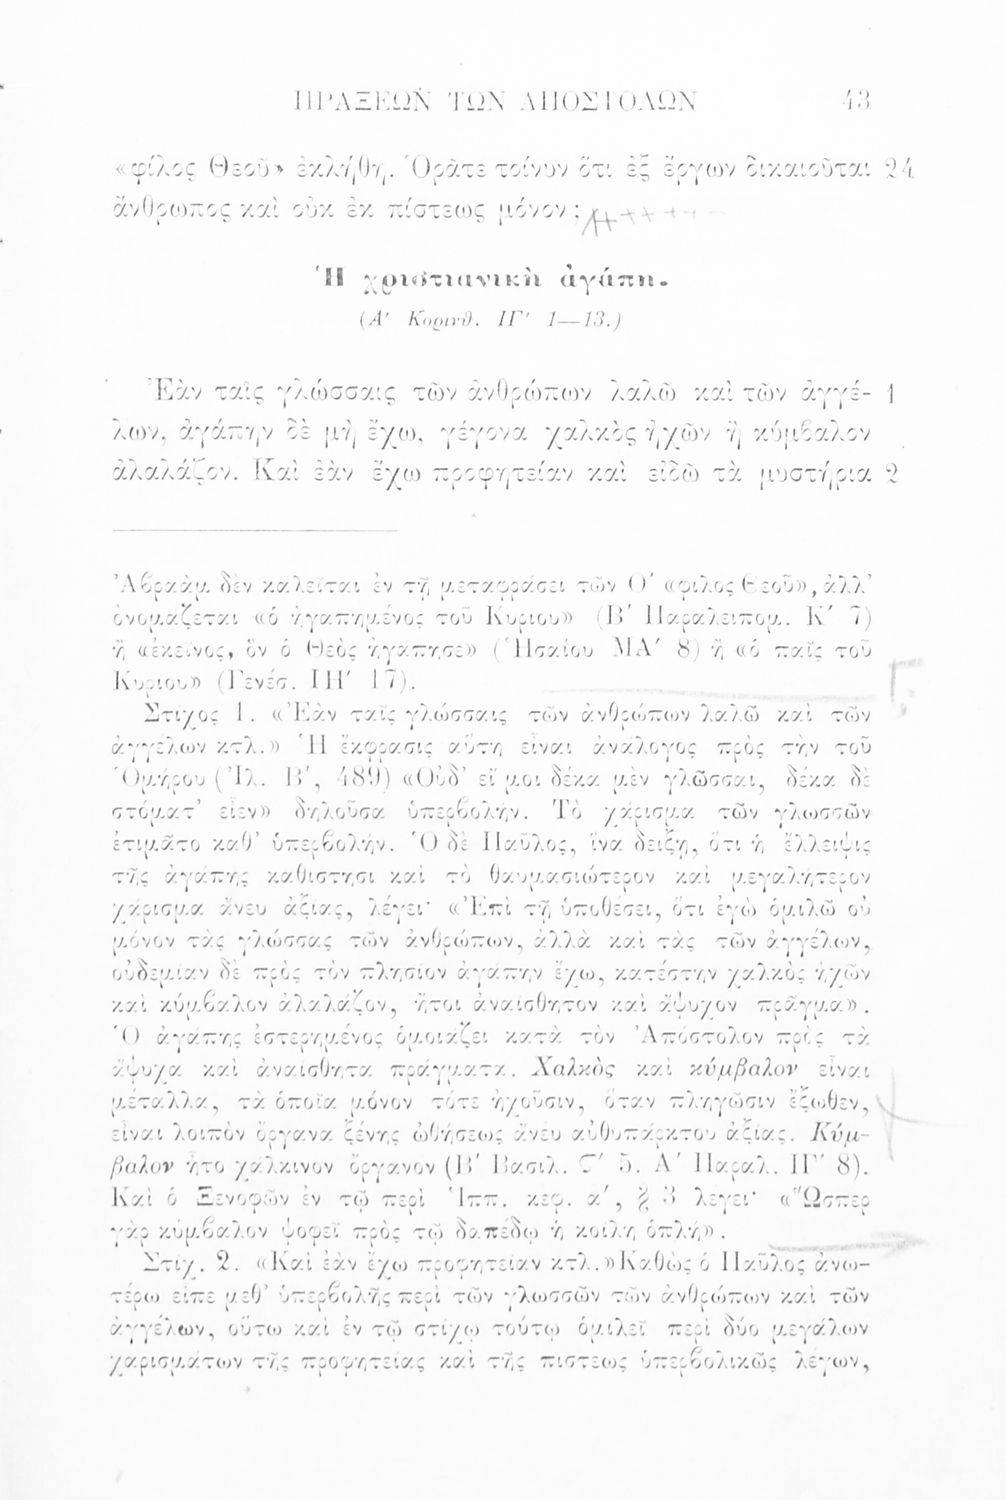 ΠΡΑΞΕΩΝ ΤΩΝ ΑΠΟΣΤΟΛΩΝ 43
«φίλος Θεοῦ» ἐκλήθη. Ὁρᾶτε τοίνυν ὅτι ἐξ ἔργων δικαιοῦται 24
ἄνθρωπος καὶ οὐκ ἐκ πίστεως μόνον;
Ἡ χριστιανικὴ ἀγάπη.
(Α' Κορινθ. ΙΓ' 1—13.)
Ἐὰν ταῖς γλώσσαις τῶν ἀνθρώπων λαλῶ καὶ τῶν ἀγγέ- 1
λων, ἀγάπην δὲ μὴ ἔχω, γέγονα χαλκὸς ἠχῶν ἢ κύμβαλον
ἀλαλάζον. Καὶ ἐὰν ἔχω προφητείαν καὶ εἰδῶ τὰ μυστήρια 2
Ἀβραὰμ δὲν καλεῖται ἐν τῇ μεταφράσει τῶν Ο' «φίλος Θεοῦ», ἀλλ'
ὀνομάζεται «ὁ ἠγαπημένος τοῦ Κυρίου» (Β' Παραλειπομ. Κ' 7)
ἢ «ἐκεῖνος, ὃν ὁ Θεὸς ἠγάπησε» (Ἡσαίου ΜΑ' 8) ἢ «ὁ παῖς τοῦ
Κυρίου» (Γενέσ. ΙΗ' 17).
Στίχος 1. «Ἐὰν ταῖς γλώσσαις τῶν ἀνθρώπων λαλῶ καὶ τῶν
ἀγγέλων κτλ.» Ἡ ἔκφρασις αὕτη εἶναι ἀνάλογος πρὸς τὴν τοῦ
Ὁμήρου (Ἰλ. Β', 489) «Οὐδ' εἴ μοι δέκα μὲν γλῶσσαι, δέκα δὲ
στόματ' εἶεν» δηλοῦσα ὑπερβολήν. Τὸ χάρισμα τῶν γλωσσῶν
ἐτιμᾶτο καθ' ὑπερβολήν. Ὁ δὲ Παῦλος, ἵνα δείξῃ, ὅτι ἡ ἔλλειψις
τῆς ἀγάπης καθίστησι καὶ τὸ θαυμασιώτερον καὶ μεγαλήτερον
χάρισμα ἄνευ ἀξίας, λέγει· «Ἐπὶ τῇ ὑποθέσει, ὅτι ἐγὼ ὁμιλῶ οὐ
μόνον τὰς γλώσσας τῶν ἀνθρώπων, ἀλλὰ καὶ τὰς τῶν ἀγγέλων,
οὐδεμίαν δὲ πρὸς τὸν πλησίον ἀγάπην ἔχω, κατέστην χαλκὸς ἠχῶν
καὶ κύμβαλον ἀλαλάζον, ἤτοι ἀναίσθητον καὶ ἄψυχον πρᾶγμα».
Ὁ ἀγάπης ἐστερημένος ὁμοιάζει κατὰ τὸν Ἀπόστολον πρὸς τὰ
ἄψυχα καὶ ἀναίσθητα πράγματα. Χαλκὸς καὶ κύμβαλον εἶναι
μέταλλα, τὰ ὁποῖα μόνον τότε ἠχοῦσιν, ὅταν πληγῶσιν ἔξωθεν,
εἶναι λοιπὸν ὄργανα ξένης ὠθήσεως ἄνευ αὐθυπάρκτου ἀξίας. Κύμ-
βαλον ἦτο χάλκινον ὄργανον (Β' Βασιλ. Ϛ' 5. Α' Παραλ. ΙΓ' 8).
Καὶ ὁ Ξενοφῶν ἐν τῷ περὶ Ἱππ. κεφ. α', § 3 λέγει· «Ὥσπερ
γὰρ κύμβαλον ψοφεῖ πρὸς τῷ δαπέδῳ ἡ κοίλη ὁπλή».
Στίχ. 2. «Καὶ ἐὰν ἔχω προφητείαν κτλ.» Καθὼς ὁ Παῦλος ἀνω-
τέρω εἶπε μεθ' ὑπερβολῆς περὶ τῶν γλωσσῶν τῶν ἀνθρώπων καὶ τῶν
ἀγγέλων, οὕτω καὶ ἐν τῷ στίχῳ τούτῳ ὁμιλεῖ περὶ δύο μεγάλων
χαρισμάτων τῆς προφητείας καὶ τῆς πίστεως ὑπερβολικῶς λέγων,